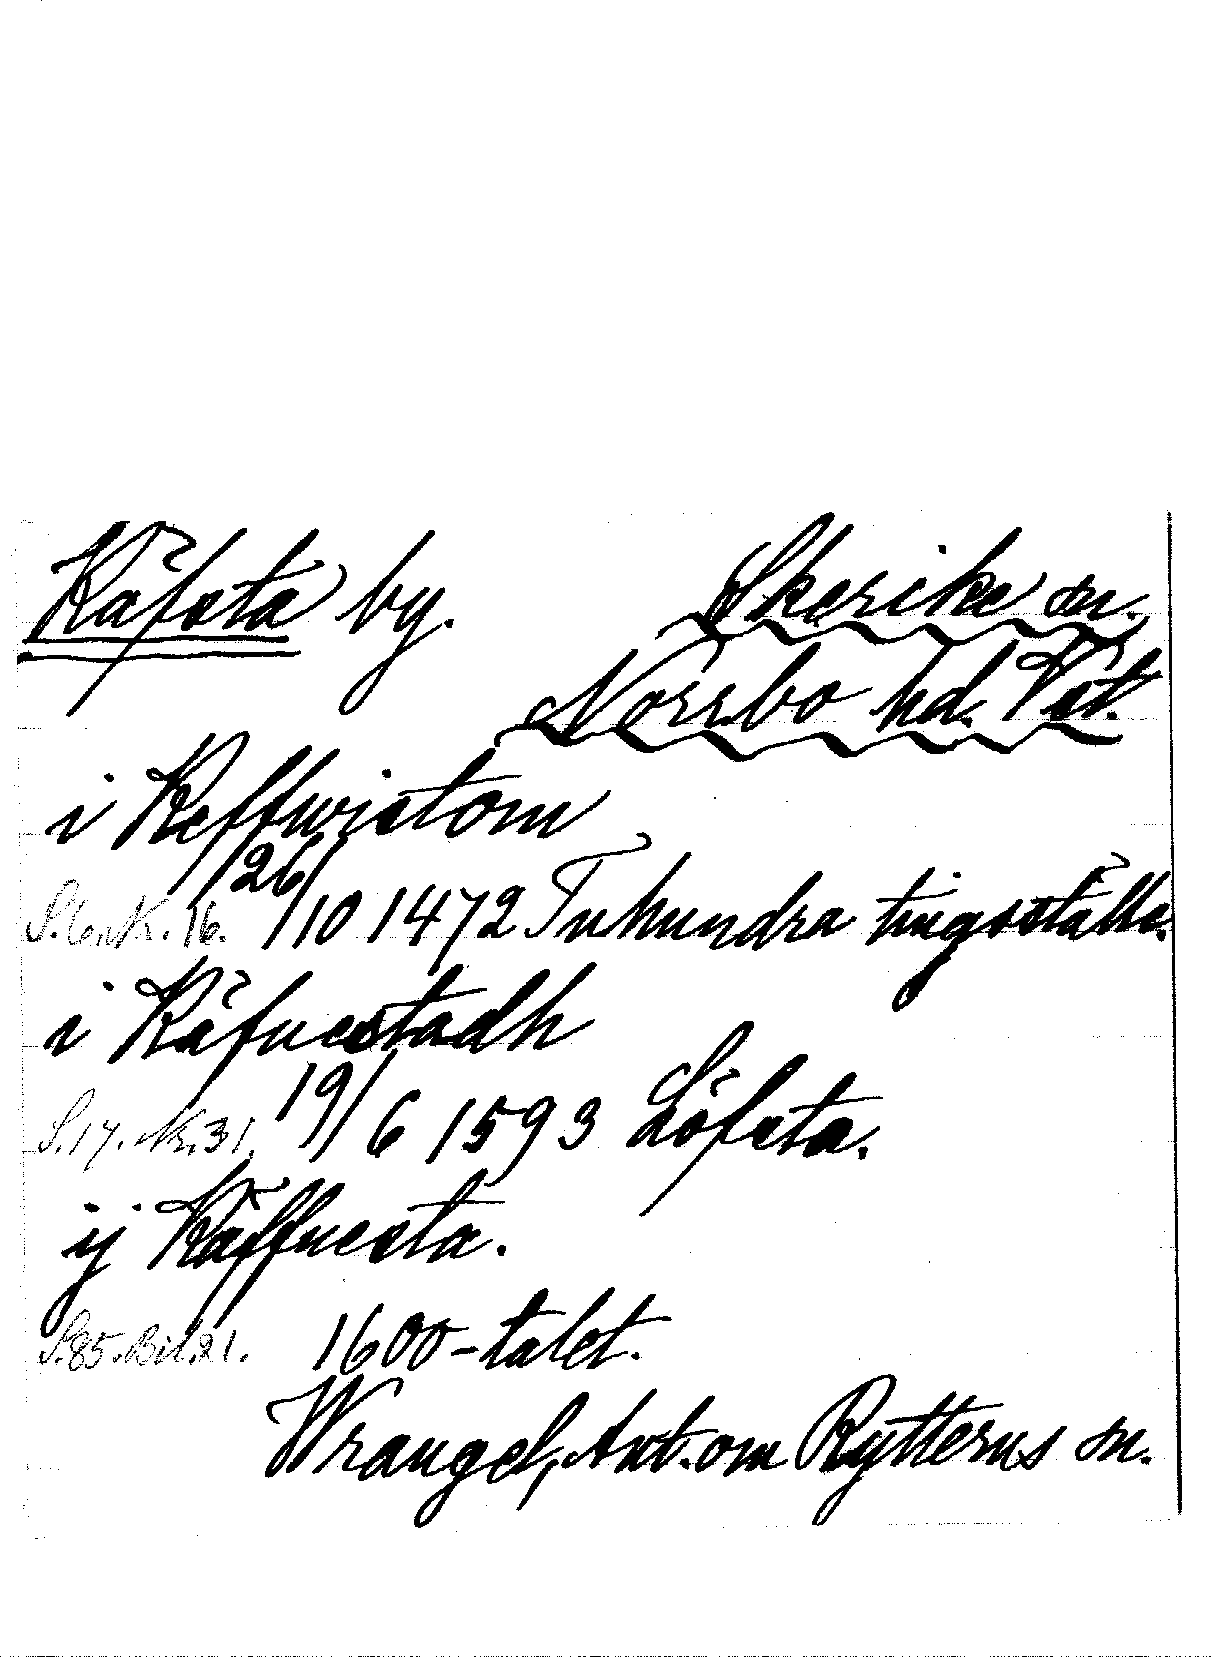 Käfsta by. Skerike sn.
Norrbo hd. Vstl.
i Keffwistom
S.6. Nr. 16. 26/10 1472 Tuhundra tingsställe.
i Käfuestadh
S.17. Nr. 31. 19/6 1593 Löfsta.
ij Käffuesta.
S.85. Bil. 21. 1600-talet.
Wrangel, Ant. om Rytterns sn.